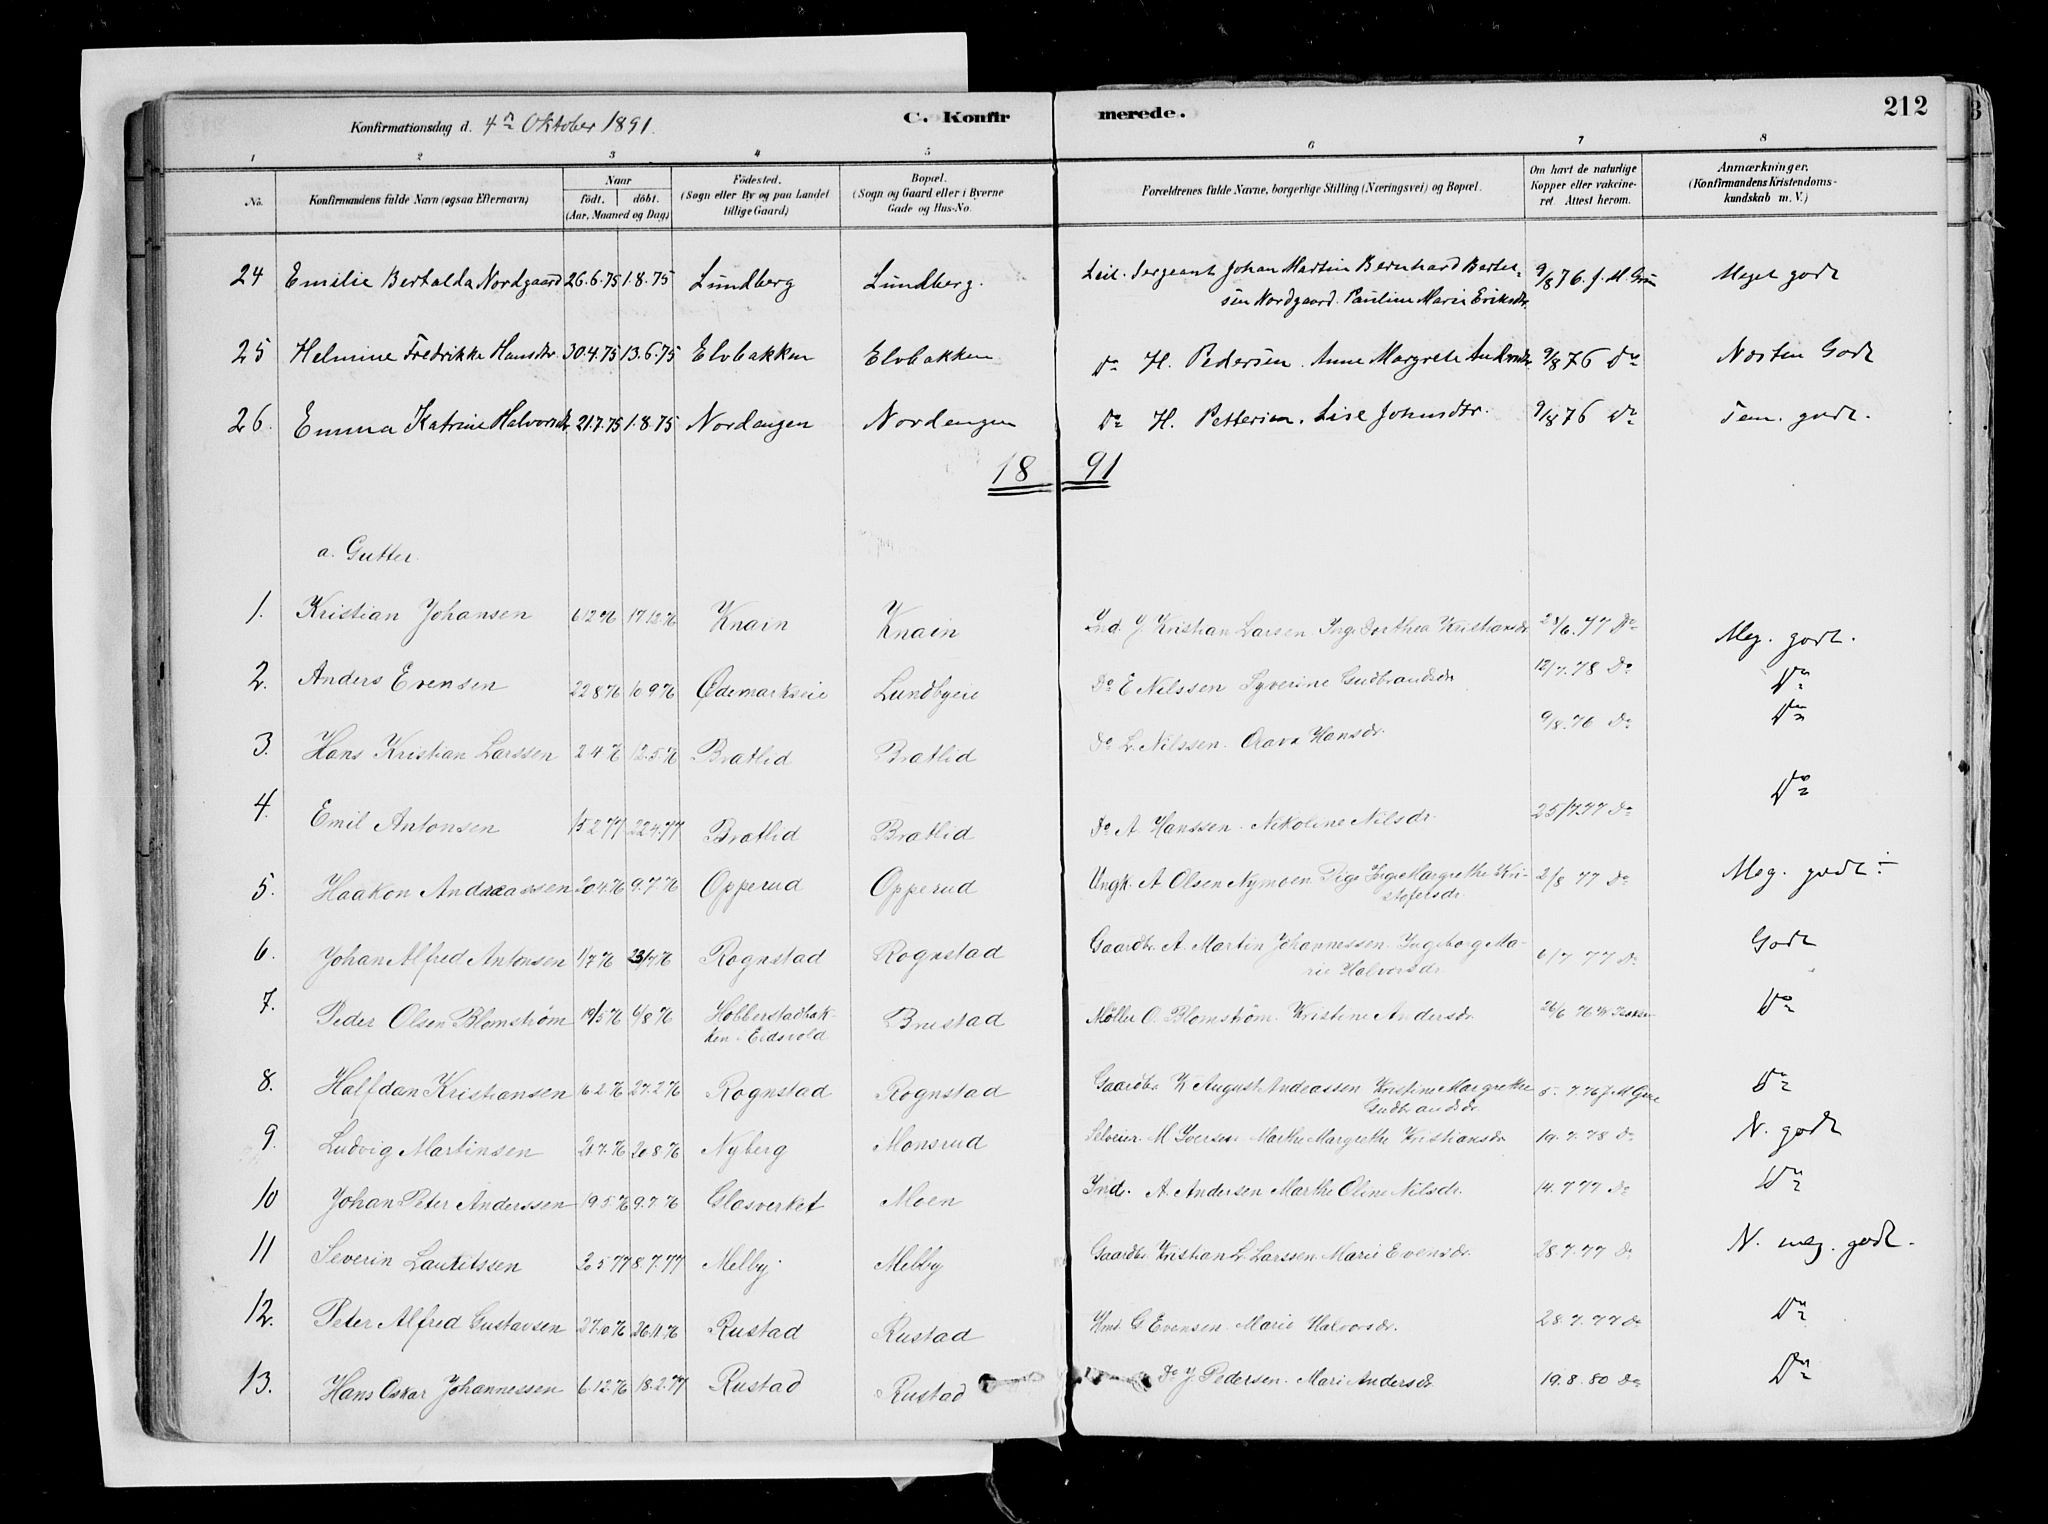 Konfirmationsdag d. 4de Oktober 1891.
C. Konfir merede.
212
1 2 3 4 5 6 7 8
No.
Konfirmandens fulde Navn (ogsaa Efternavn)
Naar
födt. döbt.
(Aar, Maaned og Dag)
Födested.
(Sogn eller By og paa Landet
tillige Gaard)
Bopæl.
(Sogn og Gaard eller i Byerne
Gade og Hus-No.
Forældrenes fulde Navne, borgerlige Stilling (Næringsvei) og Bopæl.
Om havt de naturlige
Kopper eller vakcine-
ret. Attest herom.
Anmærkninger.
(Konfirmandens Kristendoms-
kundskab m. V.)
24 Emilie Bertalda Nordgaard 26.6.75 1.8.75 Lundberg Lundberg. Sergeant Johan Martin Bernhard Bertel- 9/8 76. J. M. Meget godt
sen Nordgaard. Pauline Marie Eriksdtr.
25 Helmine Fredrikke Hansdtr. 30.4.75 13.6.75 Elvbakken Elvbakken Do H. Pedersen. Anne Margrete Andersdtr 9/8 76 Do Næsten Godt
26. Emma Katrine Halvorsdtr. 21.7.75 1.8.75 Nordengen Nordengen Do H. Pettersen. Lise Johnsdtr. 9/8 76 Do Tem. godt.
18 91
a. Gutter.
1. Kristian Johansen 6 12 76 17 12.76 Knain Knain Ind. J. Kristian Larsen Inge Dorthea Kristiansdr 23/6.77 Do Meg. godt.
2. Anders Evensen 22 8 76 10 9 76 Ødemarkseie Lundbyeie Do E Nilssen Syverine Gudbrandsdr 12/7.78 Do Do
3. Hans Kristian Larssen 2 4 76 12.5.76 Bratlid Bratlid Do L. Nilssen. Hansdr. 9/8.76 Do Do
4. Emil Antonsen 15 2 77 22 4.77 Bratlid Bratlid Do A Hanssen. Nikoline Nilsdr. 25/7.77 Do Do
5. Haakon Andreassen 20 4.76 9.7.76 Opperud Opperud Ungk. A Olsen Nymoen Pige Inge Margrethe Kri- 2/8 77 Do Meg. godt ÷
stofersdr.
6. Johan Alfred Antonsen 1/7 76 23/7 76 Rognstad Rognstad Gaardbr. A. Martin Johannessen. Ingeborg Ma- 6/7 77 Do Godt
rie Halvorsdr
7. Peder Olsen Blomstrøm 19/5 76 6/8 76 Hobberstadbak- Brustad Møller O. Blomstrøm. Kristine Andersdr 26/6 76 Isaksen Do
ken Eidsvold
8. Halfdan Kristiansen 6 2.76 27.2 76 Rognstad Rognstad Gaardbr K August Andreassen Kristine Margrethe 5. 7.76 J M Do
Gudbrandsdr
9. Ludvig Martinsen 21 7.76 20 8 76 Nyberg Monsrud Selveier. M Iversen Marthe Margrethe Kristiansdr 19. 7. 78 Do N. godt
10 Johan Peter Anderssen 19 5 76 9.7.76 Glasverket Moen Ind. A. Andersen Marthe Oline Nilsdr. 14. 7 77 Do Do
11 Severin Lauritssen 20 5 77 8.7.77 Melby. Melby Gaardbr Kristian L. Larssen Marie Evensdr. 28.7.77 Do N. meg. godt.
12. Peter Alfred Gustavsen 27.10 76 26.11 76 Rustad Rustad Hmd. G Evensen. Marie Halvorsdr. 28.7.77 Do Do
13. Hans Oskar Johannessen 6.12.76 18.2.77 Rustad Rustad Do J. Pedersen. Mari Andersdr 19.8.80 Do Do